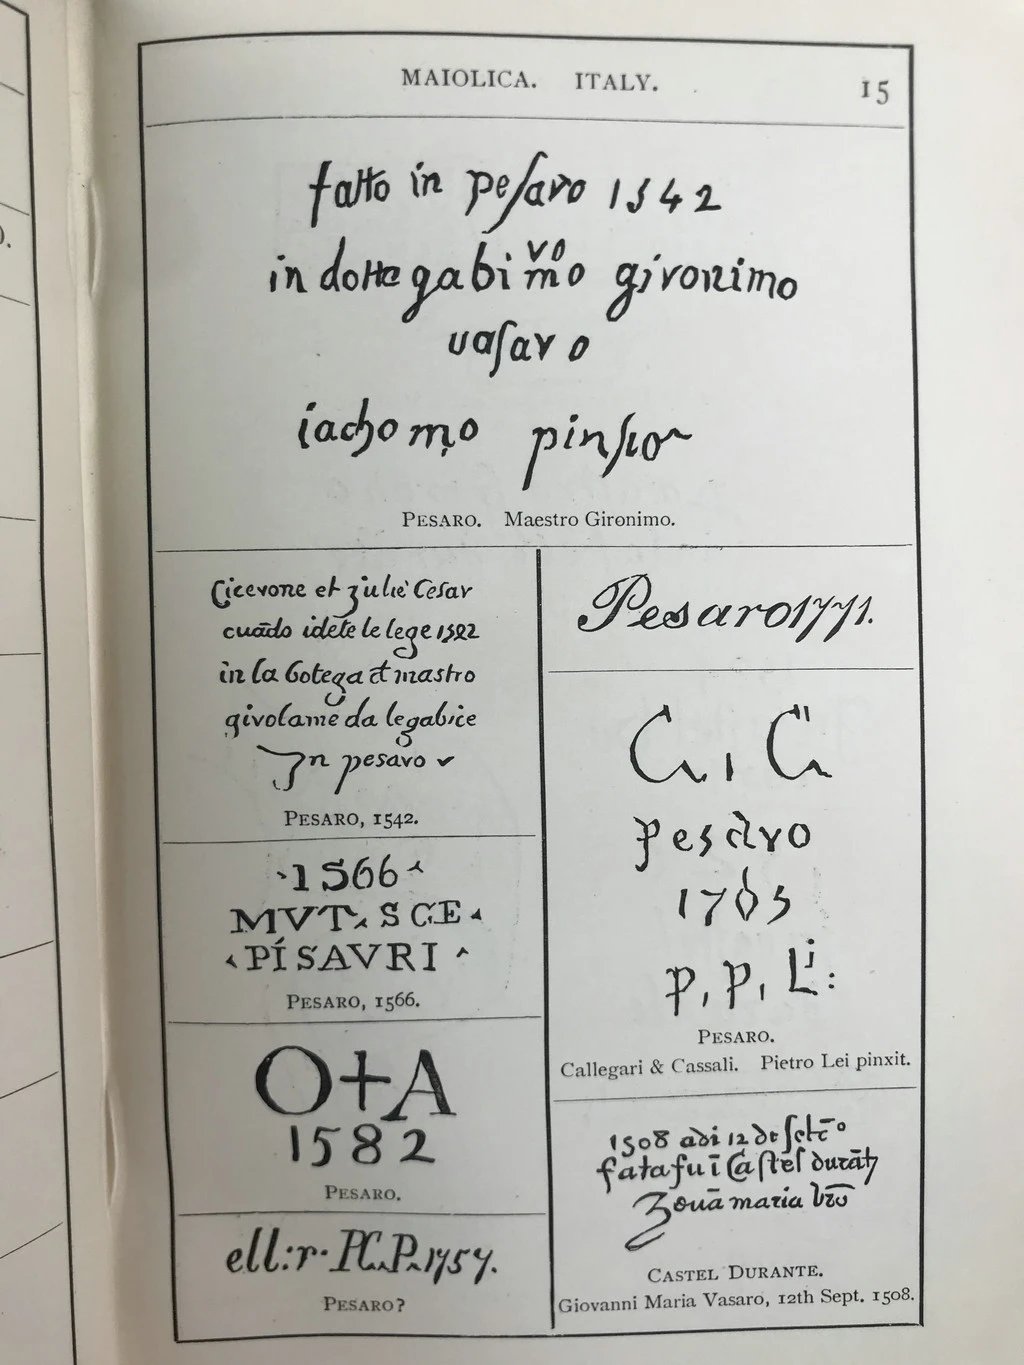 MAIOLICA. ITALY. 15
fatto in pesaro 1542
in botte gabi mo gironimo
vo
vasaro
iachomo pinsor
PESARO. Maestro Gironimo.
Cicerone et Julie Cesar
cuādo idete le lege 1542
in la botega d mastro
girolame da legabice
In pesaro
PESARO, 1542.
1566
MVT. SCE
PÍSAVRI
PESARO, 1566.
O+A
1582
PESARO.
ell:r. P.C.P. 1757.
PESARO?
Pesaro 1771.
C, C
pesaro
1765
P, P, L:
PESARO.
Callegari & Cassali. Pietro Lei pinxit.
1508 adi 12 de setē
fata fu ī Castel durāt
Zouā maria vrō
CASTEL DURANTE.
Giovanni Maria Vasaro, 12th Sept. 1508.